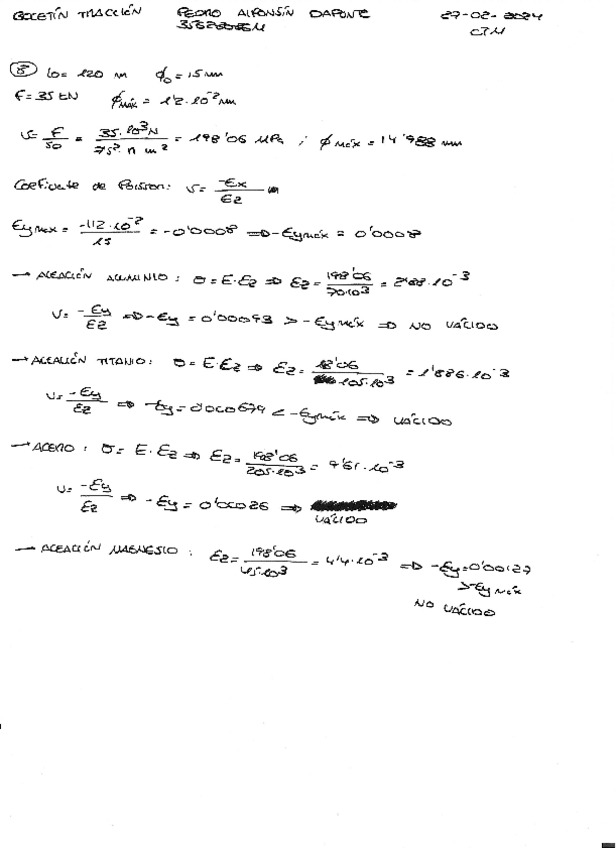 BOLETÍN TRACCIÓN PEDRO ALFONSÍN DAPONTE 27-02-2024
CTM
⑧ lo = 120 m ϕ₀ = 15 mm
F = 35 kN ϕmáx = 1'2·10⁻² mm
σ = F/S0 = 35·10³N / 7'5²·π m² = 198'06 MPa ; ϕmáx = 14'988 mm
Coeficiente de Poisson: ν = -Ex / Ez
Eymax = -1'12·10⁻² / 15 = -0'0008 ⇒ -Eymáx = 0'0008
→ ALEACIÓN ALUMINIO: σ = E·Ez ⇒ Ez = 198'06 / 70·10³ = 2'88·10⁻³
ν = -Ey / Ez ⇒ -Ey = 0'00093 > -Eymáx ⇒ NO VÁLIDO
→ ALEACIÓN TITANIO: σ = E·Ez ⇒ Ez = 18'06 / 105·10³ = 1'886·10⁻³
ν = -Ey / Ez ⇒ -Ey = 0'000679 < -Eymáx ⇒ VÁLIDO
→ ACERO: σ = E·Ez ⇒ Ez = 198'06 / 205·10³ = 9'61·10⁻³
ν = -Ey / Ez ⇒ -Ey = 0'00026 ⇒
VÁLIDO
→ ALEACIÓN MAGNESIO: Ez = 198'06 / 45·10³ = 4'4·10⁻³ ⇒ -Ey = 0'00127
> -Ey máx
NO VÁLIDO